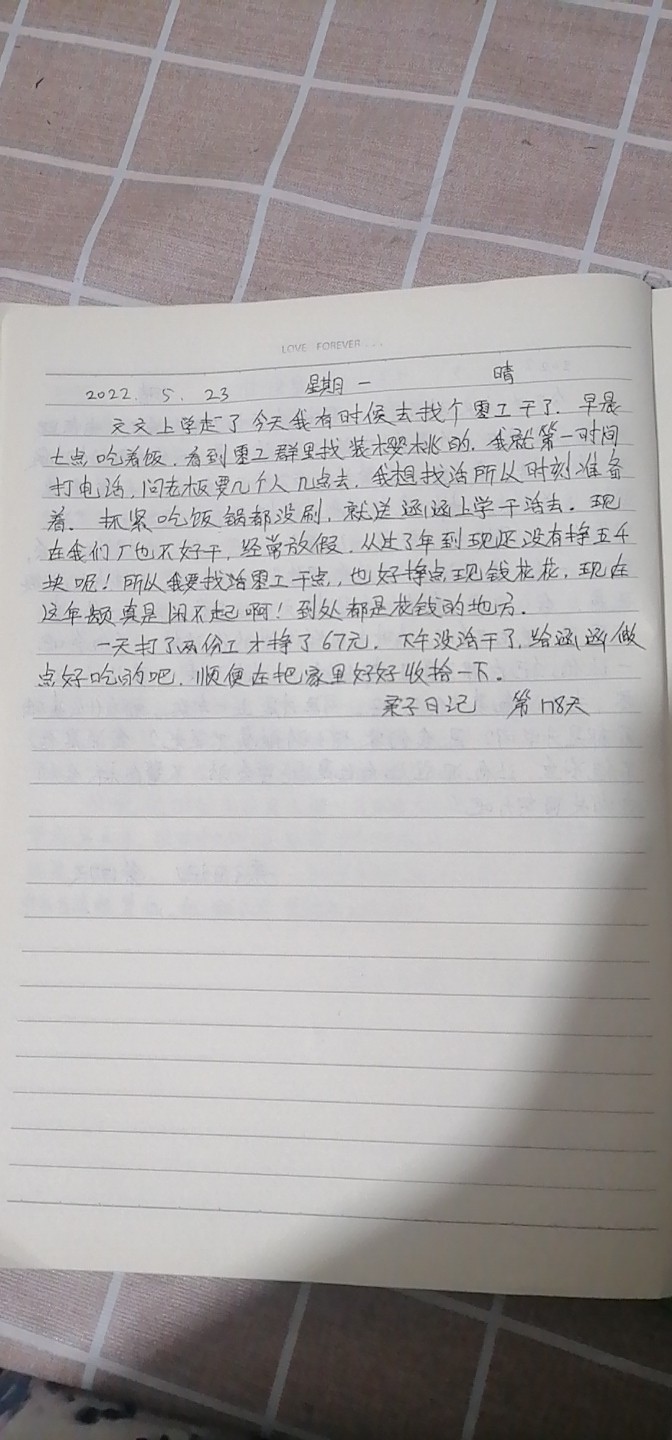 LOVE FOREVER...
2022. 5. 23 星期一 晴
文文上学走了今天我有时候去找个零工干了. 早晨
七点吃着饭, 看到零工群里找装樱桃的. 我就第一时间
打电话, 问老板要几个人几点去. 我想找活所以时刻准备
着. 抓紧吃饭锅都没刷, 就送涵涵上学干活去. 现
在我们厂也不好干, 经常放假. 从过了年到现还没有挣五千
块呢! 所以我要找活零工干点, 也好挣点现钱花花, 现在
这年头真是闲不起啊! 到处都是花钱的地方.
一天打了两份工才挣了67元. 下午没活干了, 给涵涵做
点好吃的吧. 顺便在把家里好好收拾一下。
子日记 第178天